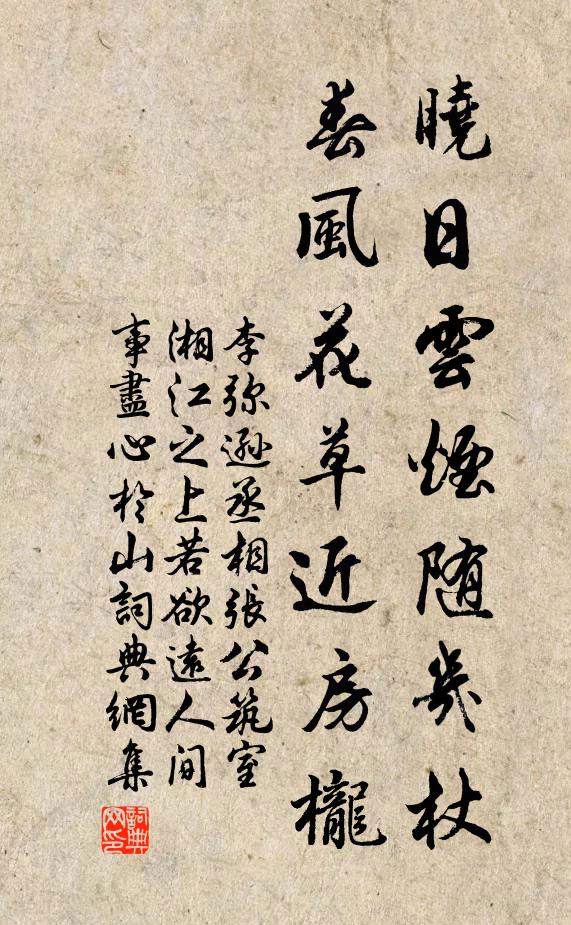 曉日雲煙随几杖
春風花草近房櫳
李弥遜丞相張公筑室
湘江之上若欲遠人间
事盡心於山詞典網集
詞典网印